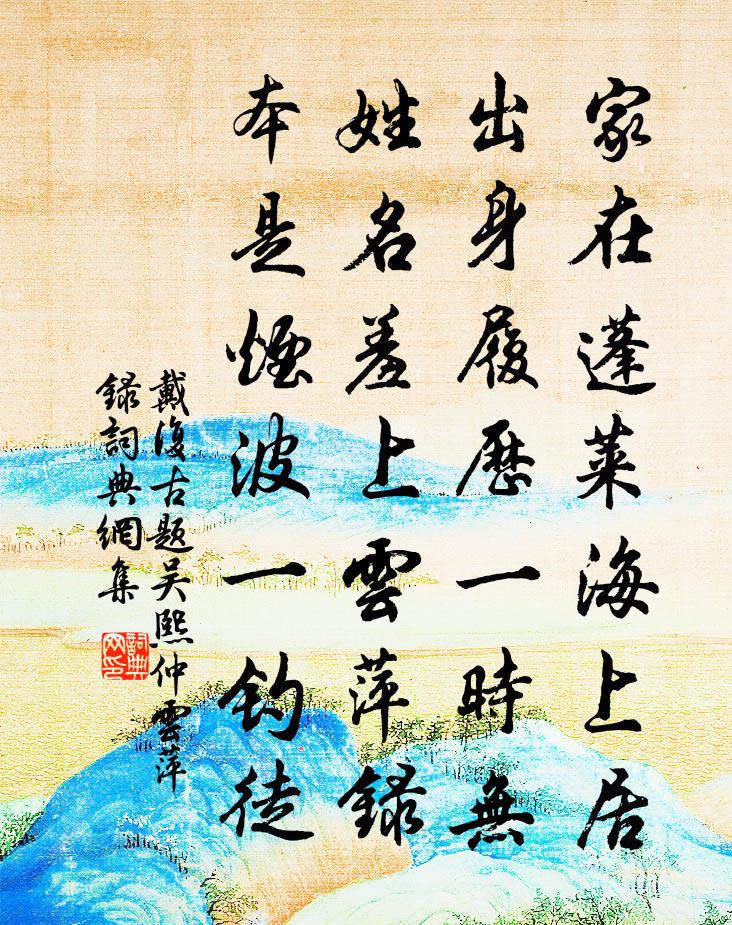 家在蓬萊海上居
出身履歷一時無
姓名羞上雲萍錄
本是煙波一釣徒
戴復古題吳熙仲雲萍
錄詞典網集
詞典
网印